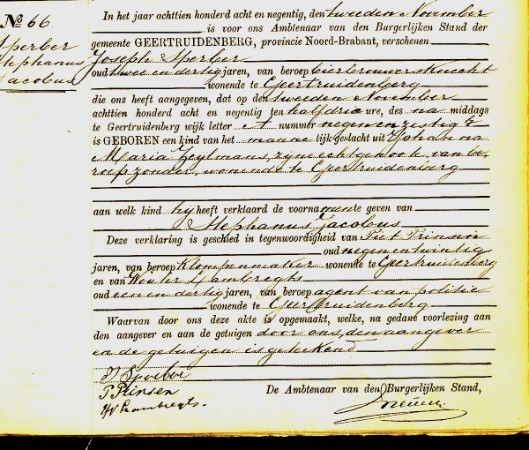 No 66
Sperber
Stephanus
Jacobus
In het jaar achttien honderd acht en negentig, den tweeden November
is voor ons Ambtenaar van den Burgerlijken Stand der
gemeente GEERTRUIDENBERG, provincie Noord-Brabant, verschenen
Joseph Sperber
oud twee en dertig jaren, van beroep bierbrouwersknecht
wonende te Geertruidenberg
die ons heeft aangegeven, dat op den tweeden November
achttien honderd acht en negentig ten half drie ure, des na middags
te Geertruidenberg wijk letter A nummer negen en zestig
is GEBOREN een kind van het manne lijk geslacht uit Johanna
Maria Zeijlmans, zyne echtgenoote, van be-
roep zonder, wonende te Geertruidenberg
aan welk kind hy heeft verklaard de voornamen te geven van
Stephanus Jacobus
Deze verklaring is geschied in tegenwoordigheid van Piet Prinsen
oud negenentwintig
jaren, van beroep Klompenmaker wonende te Geertruidenberg
en van Wouter Lambregts
oud een en dertig jaren, van beroep agent van politie
wonende te Geertruidenberg
Waarvan door ons deze akte is opgemaakt, welke, na gedane voorlezing aan
den aangever en aan de getuigen door ons, den aangever
en de getuigen is geteekend
J Sperber
P Prinsen
W Lambregts.
De Ambtenaar van den Burgerlijken Stand,